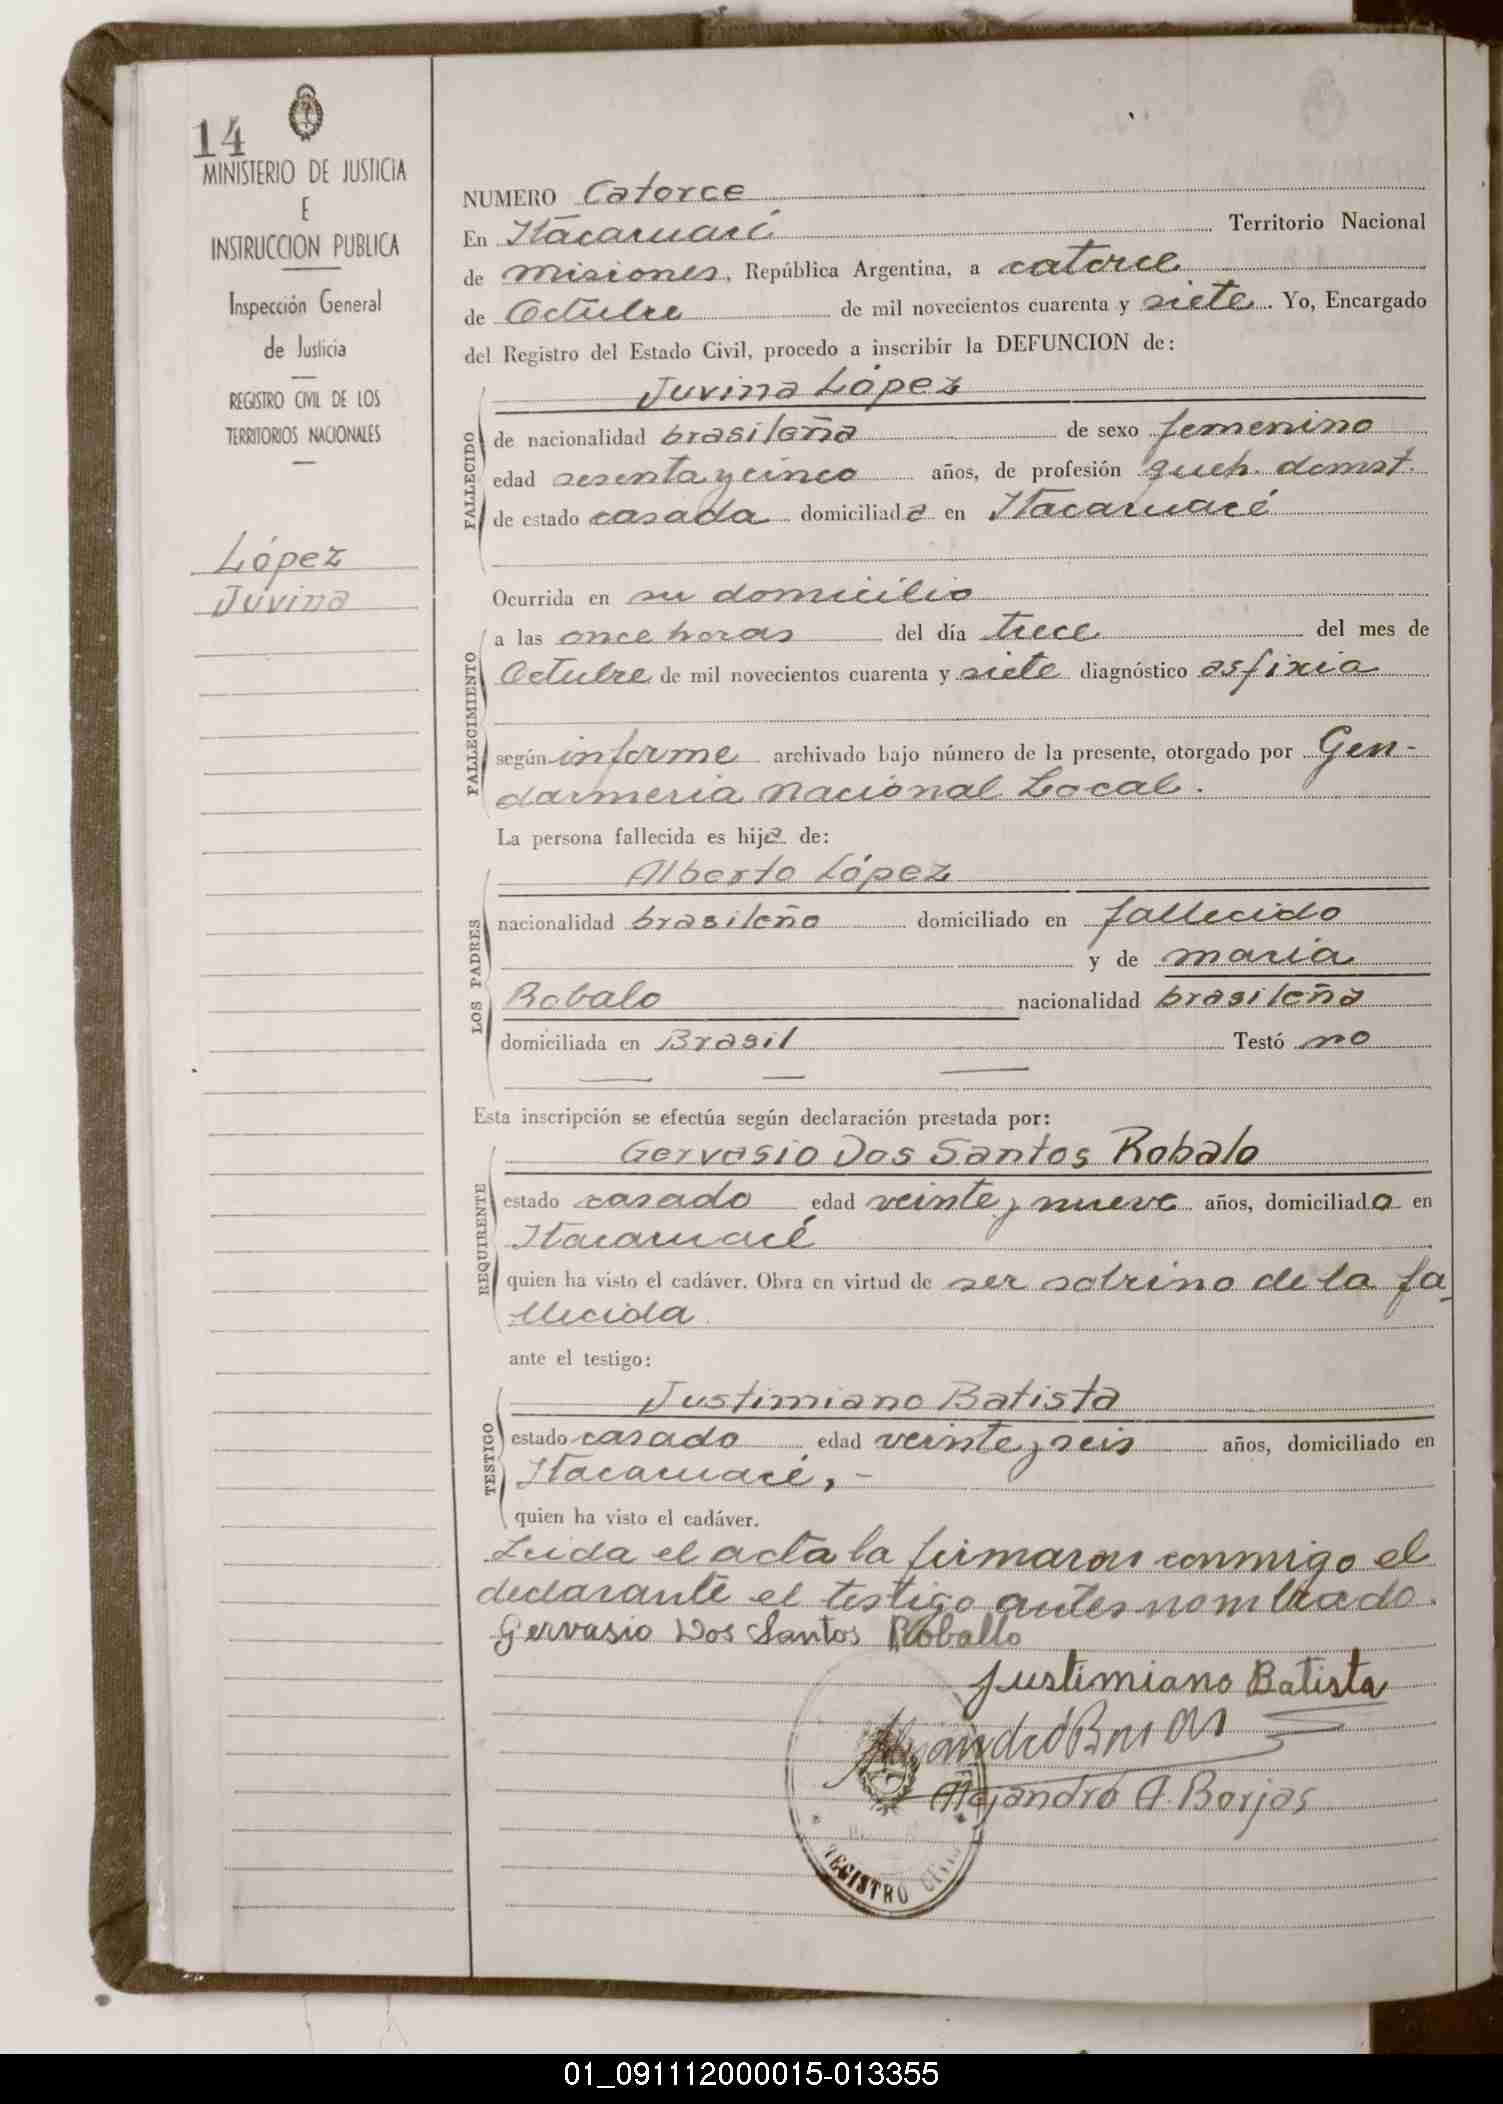 14
MINISTERIO DE JUSTICIA
E
INSTRUCCION PUBLICA
Inspección General
de Justicia
REGISTRO CIVIL DE LOS
TERRITORIOS NACIONALES
López
Juvina
NUMERO Catorce
En Itacaruaré Territorio Nacional
de Misiones, República Argentina, a catorce
de Octubre de mil novecientos cuarenta y siete. Yo, Encargado
del Registro del Estado Civil, procedo a inscribir la DEFUNCION de:
Juvina López
FALLECIDO
de nacionalidad brasileña de sexo femenino
edad sesenta y cinco años, de profesión queh. domst.
de estado casada domiciliada en Itacaruaré
FALLECIMIENTO
Ocurrida en su domicilio
a las once horas del día trece del mes de
Octubre de mil novecientos cuarenta y siete diagnóstico asfixia
según informe archivado bajo número de la presente, otorgado por Gen-
darmeria Nacional Local.
La persona fallecida es hija de:
LOS PADRES
Alberto López
nacionalidad brasileño domiciliado en fallecido
y de Maria
Robalo nacionalidad brasileña
domiciliada en Brasil Testó no
Esta inscripción se efectúa según declaración prestada por:
REQUIRENTE
Gervasio Dos Santos Robalo
estado casado edad veinte y nueve años, domiciliado en
Itacaruaré
quien ha visto el cadáver. Obra en virtud de ser sobrino de la fa-
llecida
ante el testigo:
TESTIGO
Justimiano Batista
estado casado edad veinte y seis años, domiciliado en
Itacaruaré, -
quien ha visto el cadáver.
Leida el acta la firmaron conmigo el
declarante el testigo antes nombrado.
Gervasio Dos Santos Roballo
Justimiano Batista
Alejandro A. Borjas
REGISTRO CIVIL
01_091112000015-013355